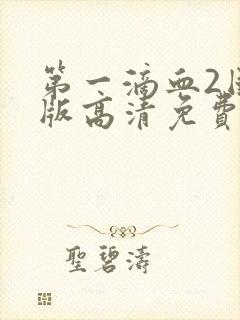 第一滴血2
版高清免费
聖碧濤